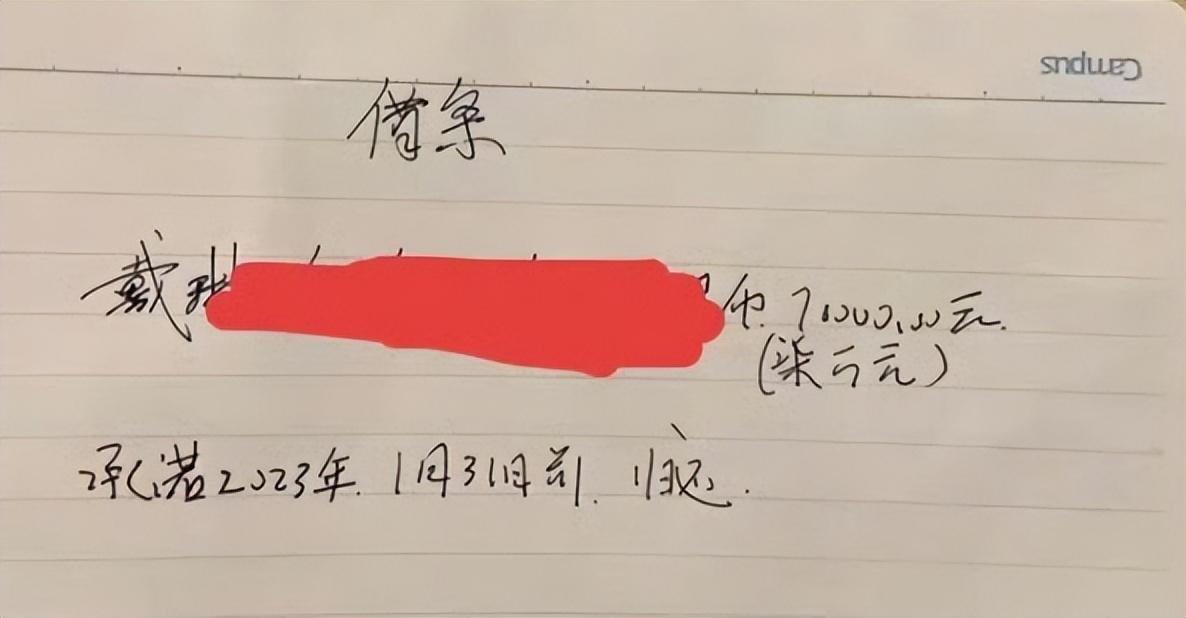 Campus
借条
戴 币.71000.00元.
(柒万元)
承诺2023年.1月31日前.归还.